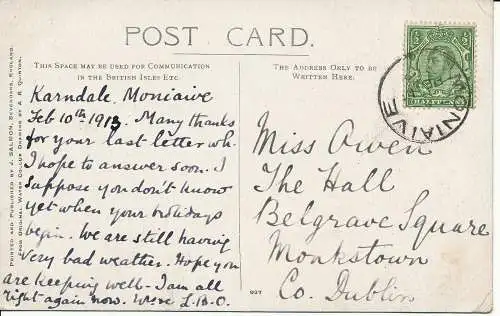 POST CARD.
THIS SPACE MAY BE USED FOR COMMUNICATION
IN THE BRITISH ISLES ETC.
THE ADDRESS ONLY TO BE
WRITTEN HERE.
PRINTED AND PUBLISHED BY J. SALMON, SEVENOAKS, ENGLAND.
FROM ORIGINAL WATER COLOUR DRAWING BY A. R. QUINTON.
Karndale, Moniaive
Feb 10th 1913. Many thanks
for your last letter wh.
I hope to answer soon. I
suppose you don't know
yet when your holidays
begin. We are still having
very bad weather. Hope you
are keeping well - I am all
right again now. L.B.O.
Miss Owen
The Hall
Belgrave Square
Monkstown
Co. Dublin
HALFPENNY
MONIAIVE